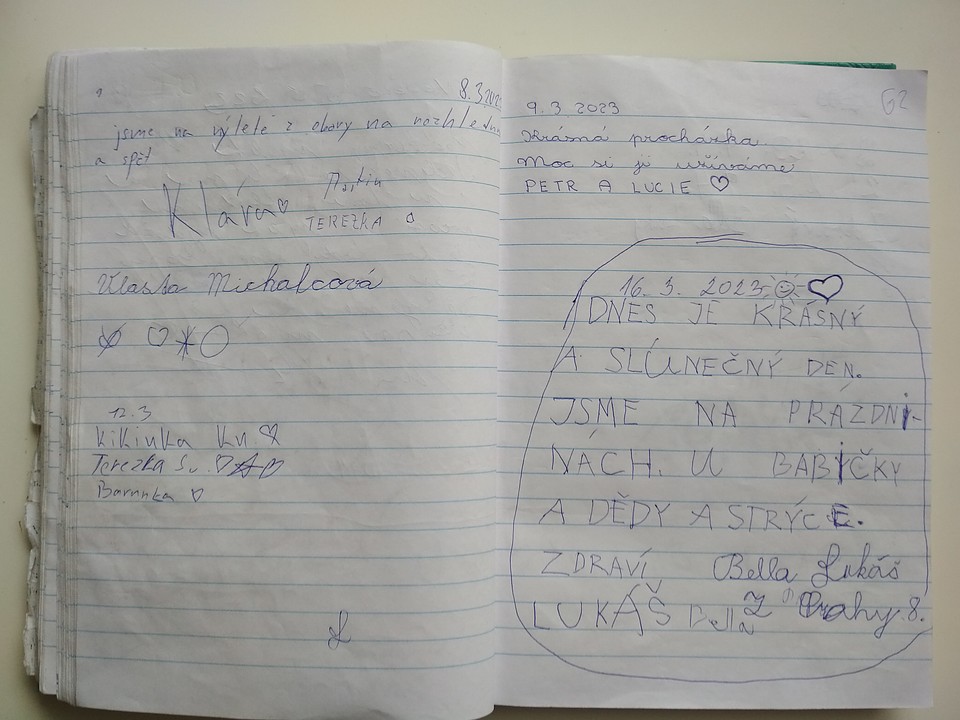 8.3.202
jsme na výletě z obory na rozhlednu
a spět
Klára
TEREZKA
Vlasta Michalcová
12.3
Kikinka Ku.
Terezka Sv.
Barunka
62
9.3 2023
Krásná procházka.
Moc si jí užíváme
PETR A LUCIE
16. 3. 2023
DNES JE KRÁSNÝ
A SLUNEČNÝ DEN.
JSME NA PRÁZDNI-
NÁCH. U BABIČKY
A DĚDY A STRÝCE.
ZDRAVÍ Bella Lukáš
LUKÁŠ Bella Z Prahy 8.